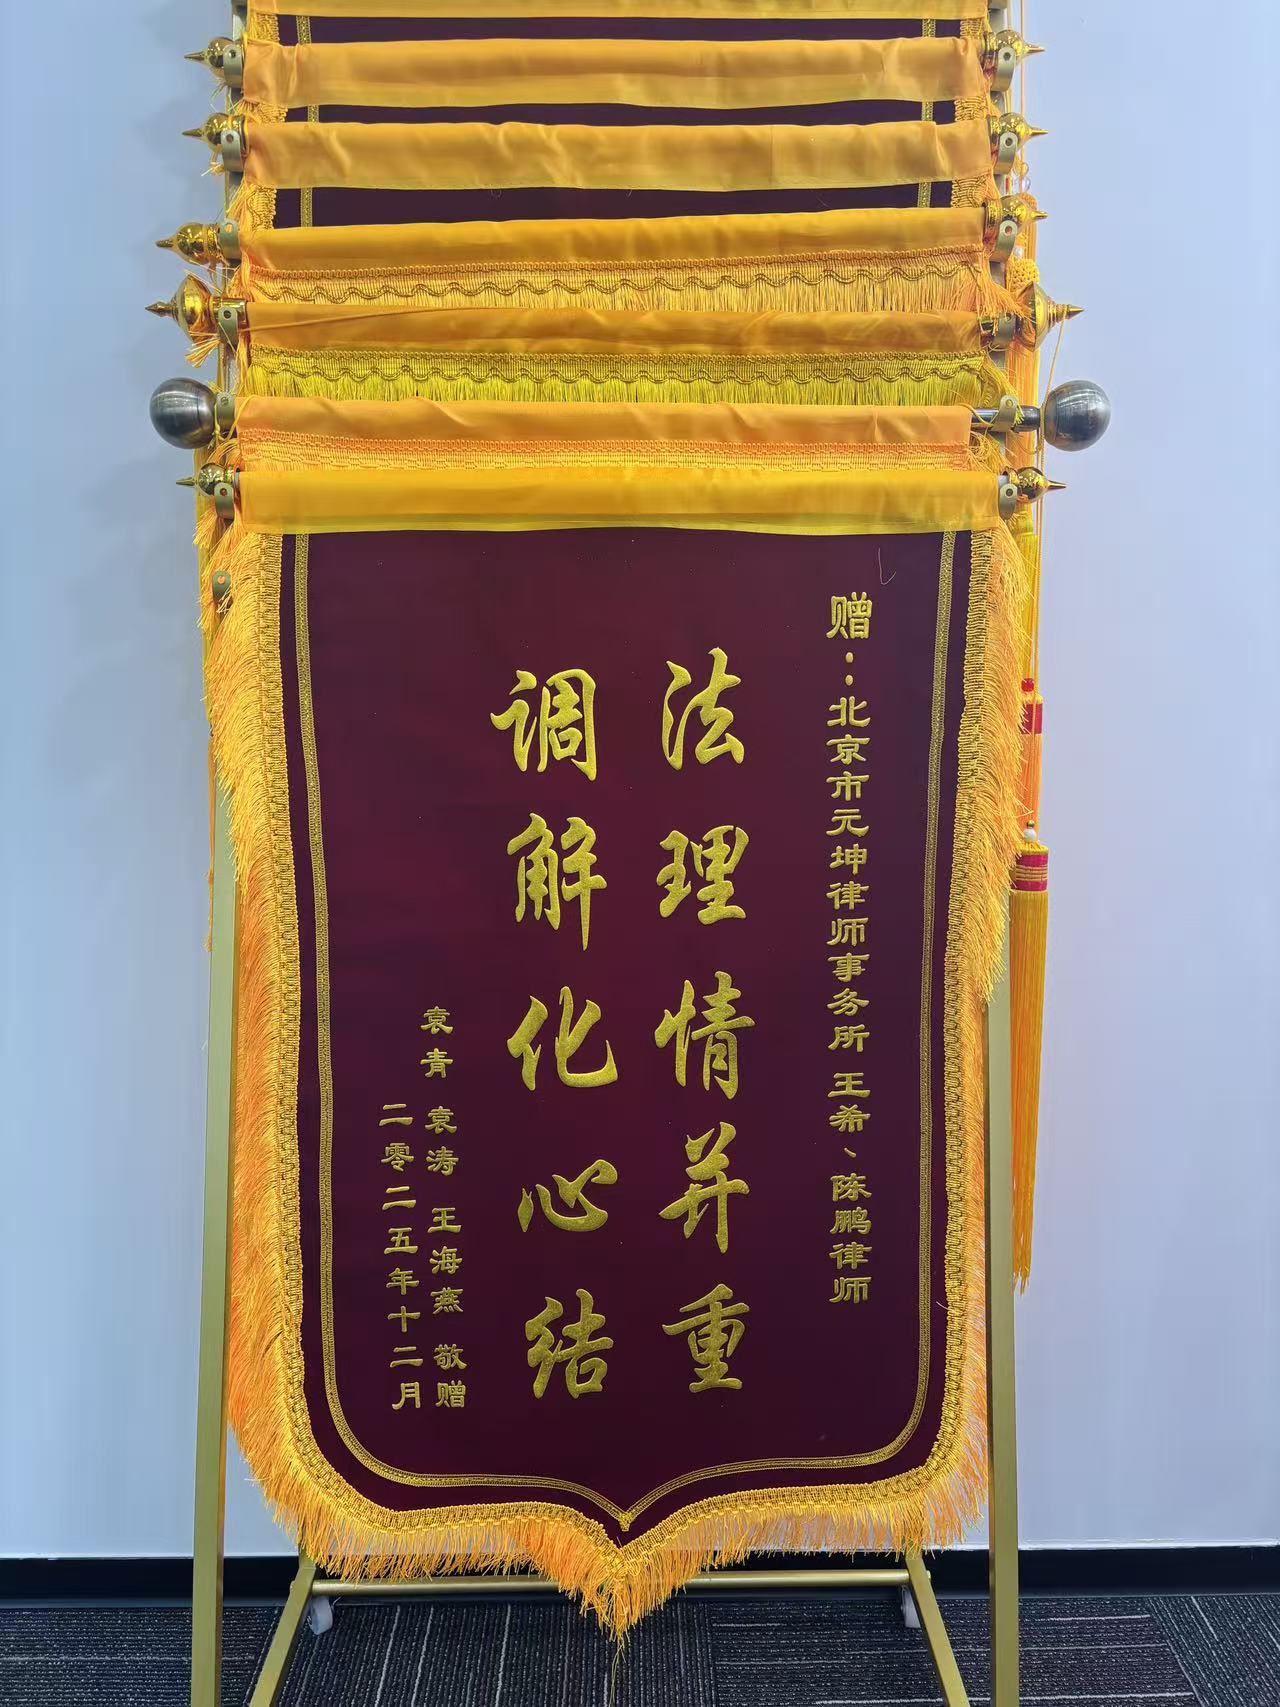 赠：北京市元坤律师事务所 王希、陈鹏律师
法理情并重
调解化心结
袁青 袁涛 王海燕 敬赠
二零二五年十二月